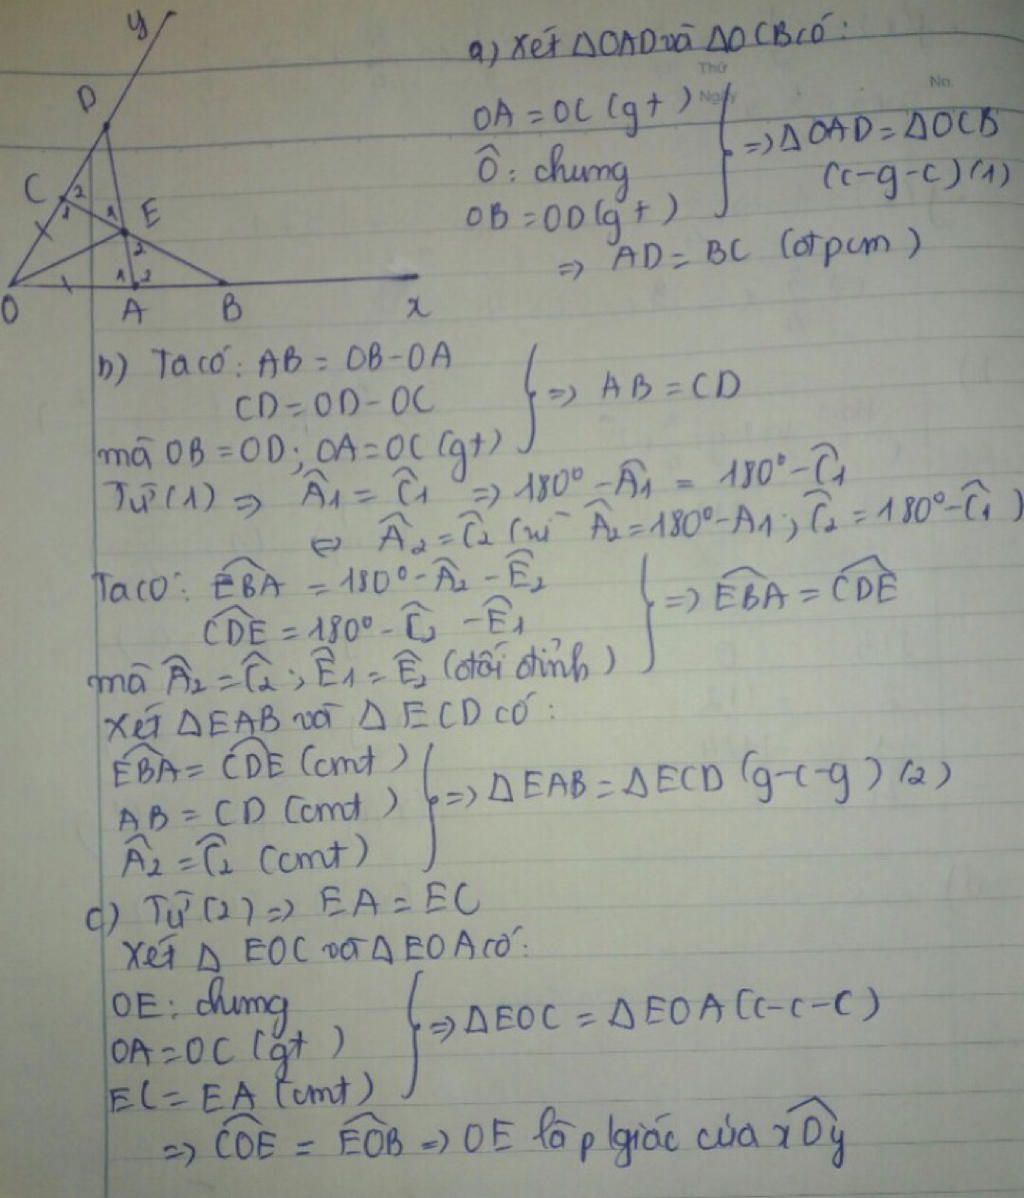 y
D
C 2
1 1 E
2
1 2
O A B x
a) Xét ΔOAD và ΔOCB có:
Thứ
Ngày
No.
OA = OC (gt)
Ô: chung
OB = OD (gt)
=> ΔOAD = ΔOCB
(c-g-c) (1)
=> AD = BC (đtpcm)
b) Ta có: AB = OB - OA
CD = OD - OC
mà OB = OD; OA = OC (gt)
=> AB = CD
Từ (1) => Â1 = Ĉ1 => 180° - Â1 = 180° - Ĉ1
<=> Â2 = Ĉ2 (vì Â2 = 180° - A1; Ĉ2 = 180° - Ĉ1)
Ta có: EBÂ = 180° - Â2 - Ê2
CDÊ = 180° - Ĉ2 - Ê1
mà Â2 = Ĉ2; Ê1 = Ê2 (đối đỉnh)
=> EBÂ = CDÊ
Xét ΔEAB và ΔECD có:
EBÂ = CDÊ (cmt)
AB = CD (cmt)
Â2 = Ĉ2 (cmt)
=> ΔEAB = ΔECD (g-c-g) (2)
c) Từ (2) => EA = EC
Xét Δ EOC và ΔEOA có:
OE: chung
OA = OC (gt)
EC = EA (cmt)
=> ΔEOC = ΔEOA (c-c-c)
=> COÊ = EOB̂ => OE là p/giác của xOŷ